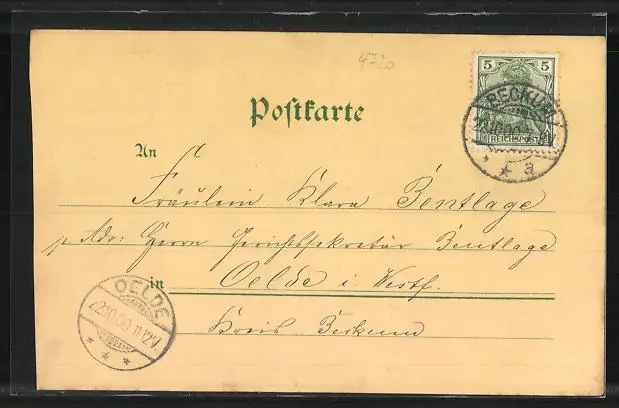 4720
5 5
REICHSPOST
BECKUM
22.10.00
a
Postkarte
An
Fräulein Klara Bentlage
p. Adr: Herrn Gerichtssekretär Bentlage
in Oelde i. Westf.
Kreis Beckum
OELDE
22.10.00 11-12V